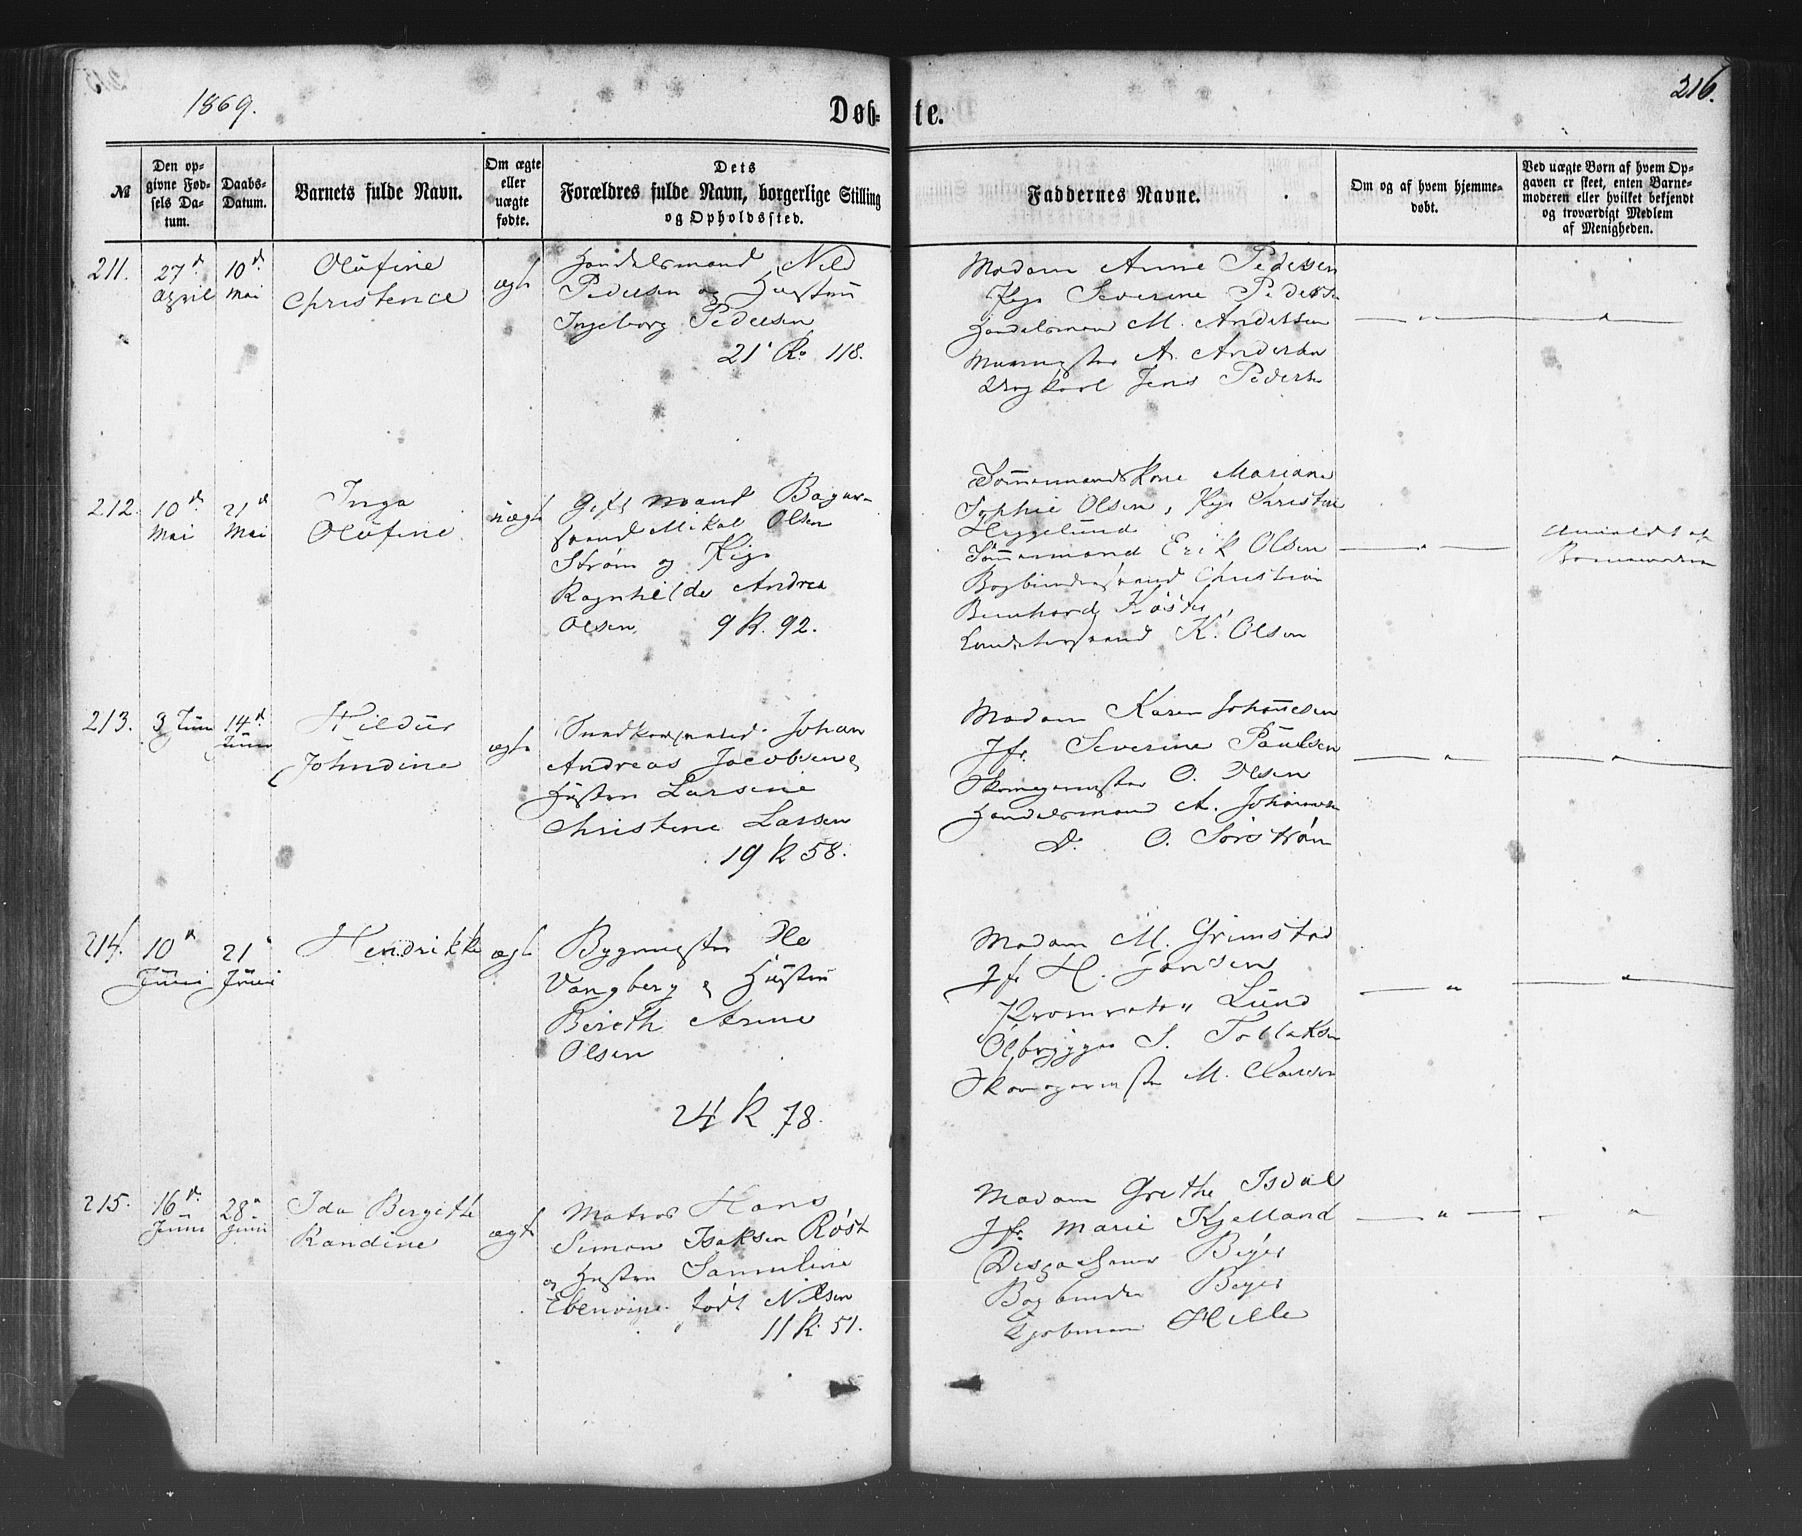 1869.
Døb-
te.
216.
№
Den op-
givne Fød-
sels Da-
tum.
Daabs-
Datum.
Barnets fulde Navn.
Om ægte
eller
uægte
fødte.
Dets
Forældres fulde Navn, borgerlige Stilling
og Opholdssted.
Faddernes Navne.
Om og af hvem hjemme-
døbt.
Ved uægte Børn af hvem Op-
gaven er skeet, enten Barne-
moderen eller hvilket bekjendt
og troværdigt Medlem
af Menigheden.
211.
27d
April
10d
Mai
Olufine
Christence
ægt
Handelsmand Nils
Pedersen og Hustru
Ingeborg Pedersen
21 R. 118.
Madam Anne Pedersen
Pige Severine Peders
Handelsmand M. Anderssen
Murmester A. Andersen
Jens Peders
212.
10d
Mai
21d
Mai
Inga
Olufine
uægt
Gift Mand Bager-
svend Mikal Olsen
Strøm og Pige
Ragnhilde Andrea
Olsen. 9 R. 92.
Tømmermands Kone Mariane
Sophie Olsen, Pige Christine
Heggelund
Tømmermand Erik Olsen
Bogbindersvend Christian
Bernhard Køster,
K. Olsen
Anmeldt af
Barnemoderen
213.
3 Juni
14d
Juni
Hildur
Johndine
ægte
Johan
Andreas Jacobsen &
Hustru Larsine
Christine Larsen
19 R 58.
Madam Karen Johannesen
Jfr. Severine Paulsen
Skomagermester O. Olsen
Handelsmand A. Johannesen
D. O. Sørstrøm
214.
10d
Juni
21
Juni
Hendrikke
ægt
Bygmester Ole
Vangberg & Hustru
Bereth Arine
Olsen
24 R 78.
Madam M. Grimstad
Jfr H. Jansen
Procurator Lund
Ølbrygger S. Tollaksen
Skomagermester M. Clausen
215.
16d.
Juni
28d
Juni
Ida Bergitte
Randine
ægt
Matros Hans
Simon Isaksen Røst
og Hustru Samuline
Ebenovine født Nilsen
11 R. 51.
Madam Grethe Isdal
Jfr. Marie Kjelland
Dispacheur Beyer
Bogbinder Beyer
Kjøbmand Hille